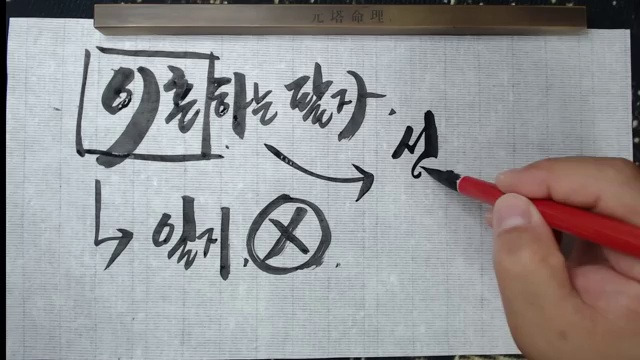 元塔命理
이혼하는 팔자.
일지. X.